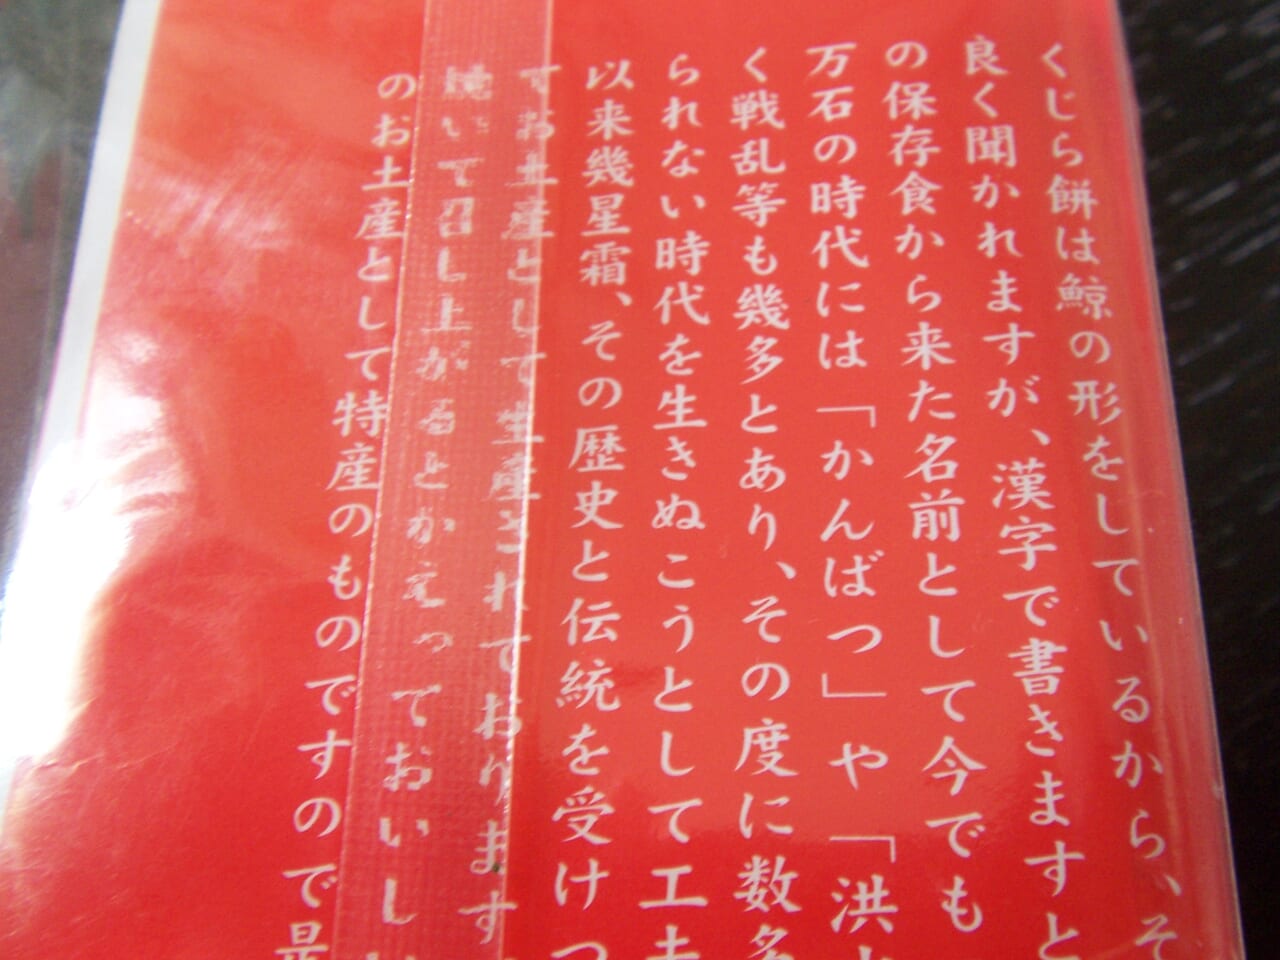 くじら餅は鯨の形をしているから、そ
良く聞かれますが、漢字で書きますと
の保存食から来た名前として今でも
万石の時代には「かんばつ」や「洪
く戦乱等も幾多とあり、その度に数多
られない時代を生きぬこうとして工夫
以来幾星霜、その歴史と伝統を受けつ
てお土産として生産されております
焼いて召し上がるとかえっておいし
のお土産として特産のものですので是